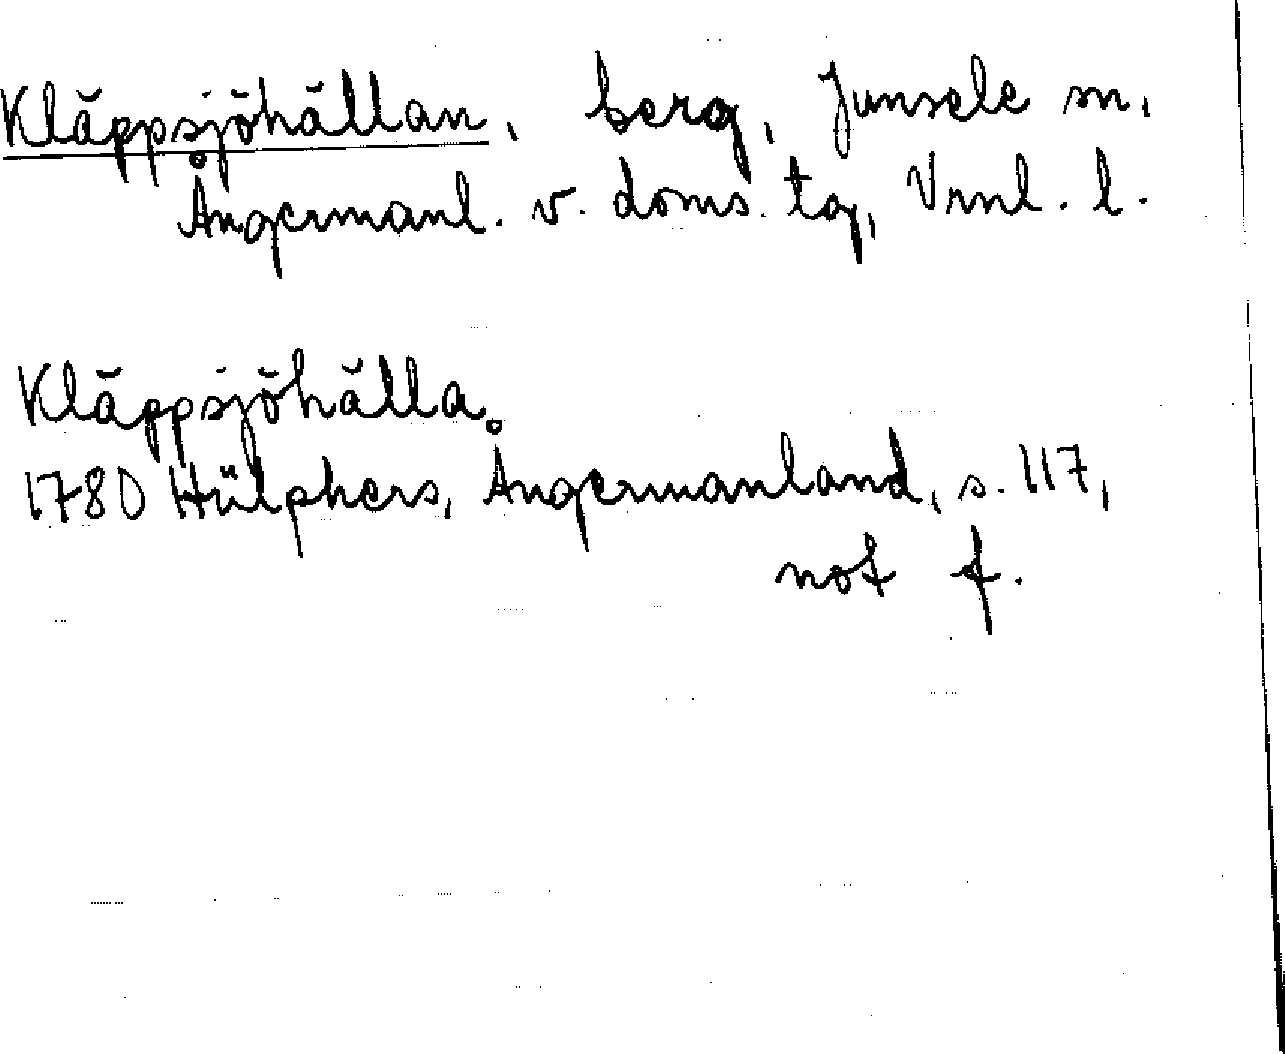 Kläppsjöhällan, berg, Junsele sn.
Ångermanl. v. doms. tg, Vrnl. l.
Kläppsjöhälla.
1780 Hülphers, Ångermanland, s. 117,
not f.